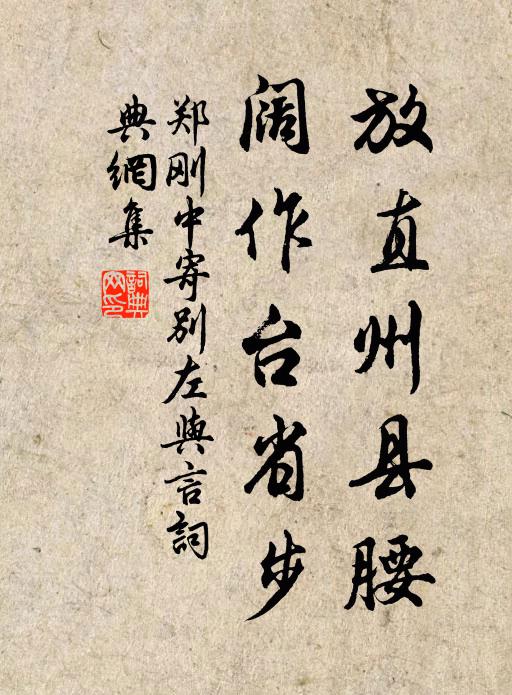 放直州县腰
阔作台省步
郑刚中寄别左與言詞
典網集
詞典
网印